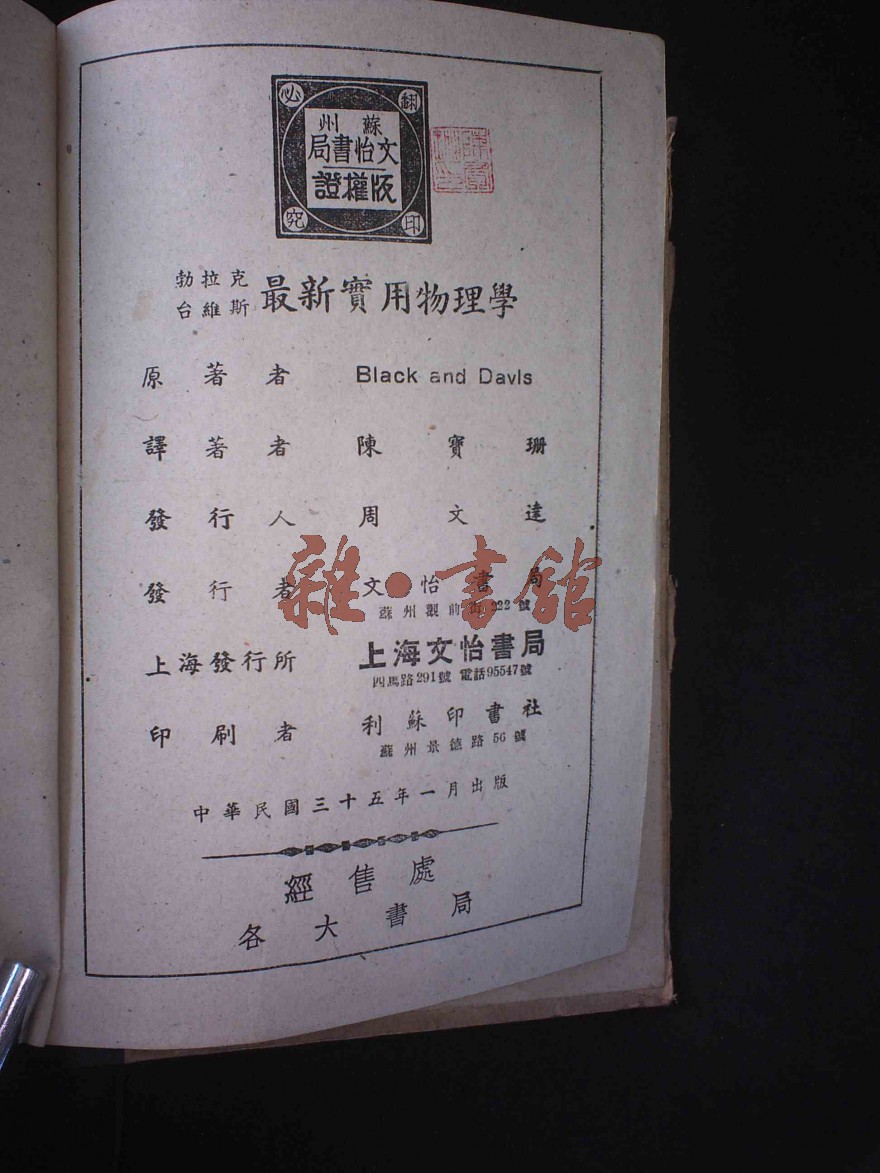 翻印必究
蘇州
文怡書局
版權證
勃拉克
台維斯
最新實用物理學
原著者 Black and Davls
譯著者 陳寶珊
發行人 周文達
發行者 文怡書局
蘇州觀前街222號
上海發行所 上海文怡書局
四馬路291號 電話95547號
印刷者 利蘇印書社
蘇州景德路56號
中華民國三十五年一月出版
經售處
各大書局
雜·書館